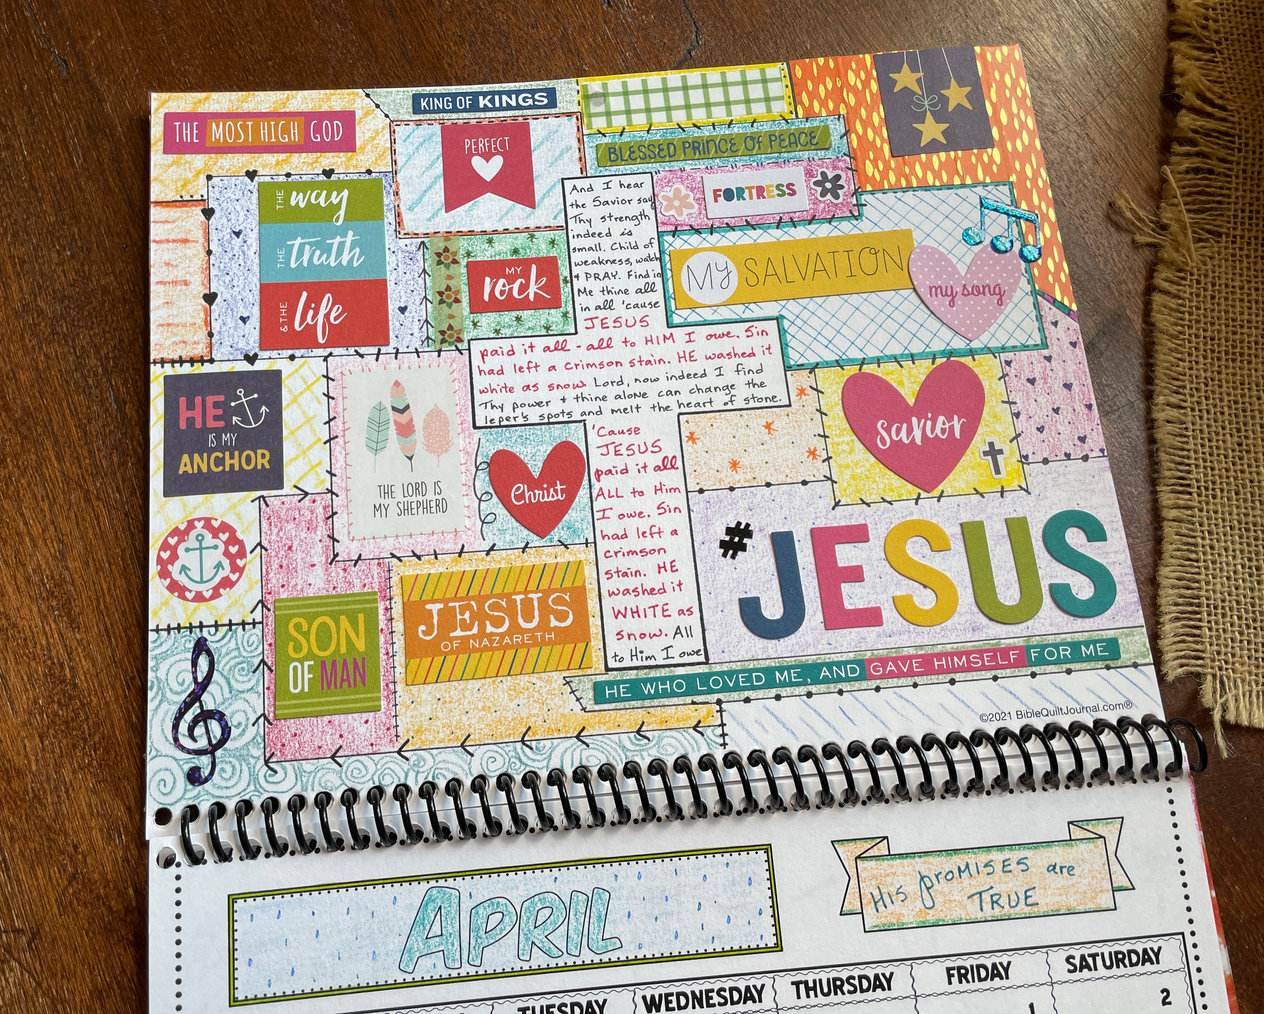 KING OF KINGS
THE MOST HIGH GOD
PERFECT
BLESSED PRINCE OF PEACE
FORTRESS
THE way
THE truth
& THE life
MY
rock
And I hear
the Savior say
Thy strength
indeed is
small. Child of
weakness, watch
& PRAY. Find in
Me thine all
in all 'cause
JESUS
paid it all - all to HIM I owe. Sin
had left a crimson stain. HE washed it
white as snow. Lord, now indeed I find
Thy power & thine alone can change the
leper's spots and melt the heart of stone.
'Cause
JESUS
paid it all
ALL to Him
I owe. Sin
had left a
crimson
stain. HE
washed it
WHITE as
snow. All
to Him I owe
MY SALVATION
my song
HE
IS MY
ANCHOR
THE LORD IS
MY SHEPHERD
Christ
savior
#JESUS
SON
OF MAN
JESUS
OF NAZARETH
HE WHO LOVED ME, AND GAVE HIMSELF FOR ME
©2021 BibleQuiltJournal.com®
APRIL
His promises are
TRUE
TUESDAY WEDNESDAY THURSDAY FRIDAY SATURDAY
1 2